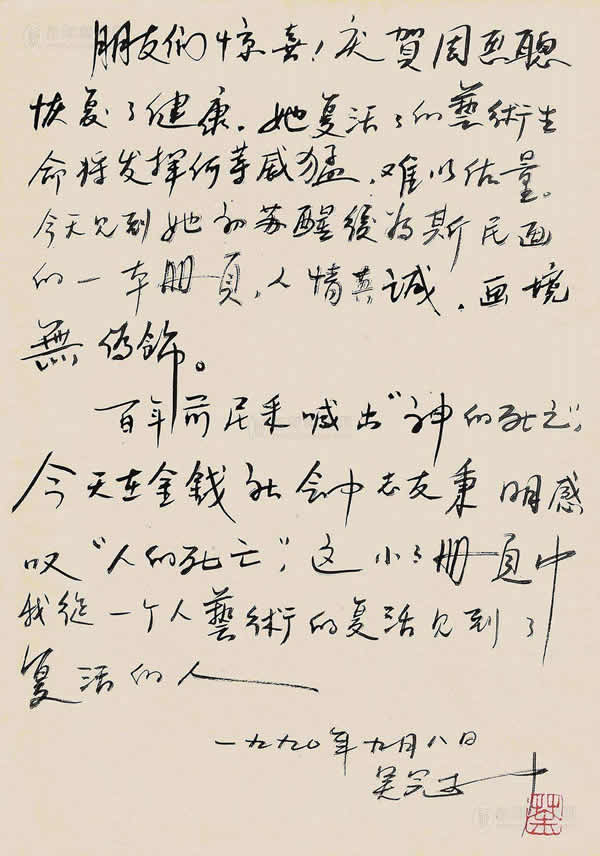 朋友们惊喜！庆贺周思聪
恢复了健康。她复活了的藝術生
命将发挥何等威猛，难以估量。
今天见到她初苏醒後为斯民画
的一本册頁，人情真誠，画境
無偽飾。
百年前尼采喊出“神的死亡”，
今天在金錢社会中老友秉明感
叹“人的死亡”，这小小册頁中
我從一个人藝術的复活见到了
复活的人
一九九〇年九月八日
吴冠中
荼